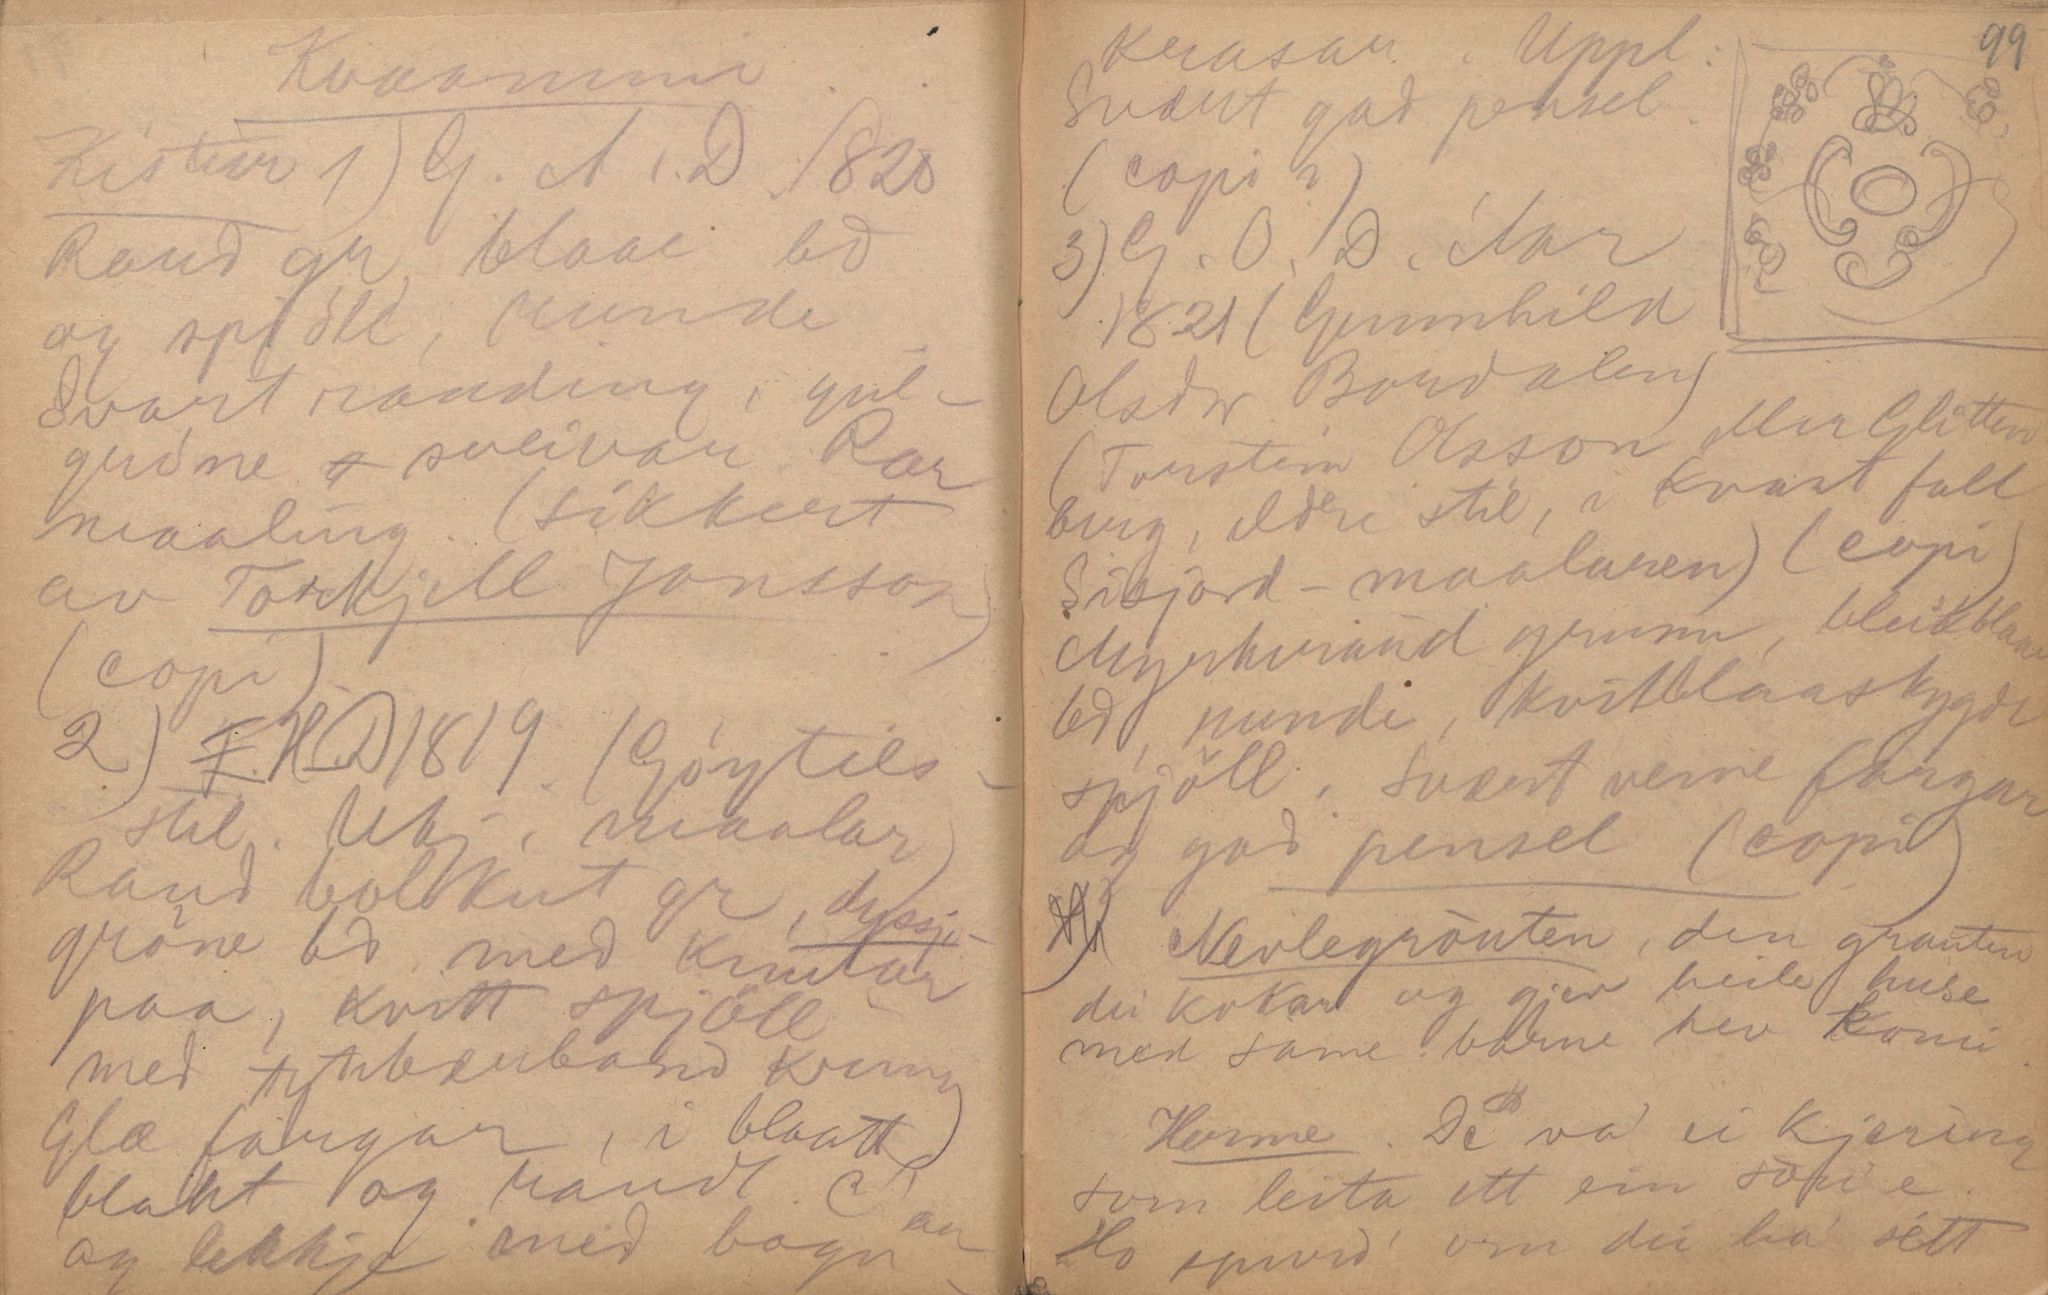 Kvaammi
Kistur 1) G. A. D. 1820
Raud gr, blaae bd
og spjöll, runde
Svart randing, gul-
gröne sveivar. Rar
maaling. (sikkert
av Torkjell Jonsson)
(copi)
2) H.D 1819. (Göytils-
stil. Ukj. maalar)
Raud bolkut gr, dussj-
gröne bd med knutar
paa, kvitt spjöll
med band krung
Glæ fargar, i blaatt,
blakt og raudt. C'ar
og lekkje med bogn
99
Krasar. Uppl:
Svært god pensel.
(copi?)
3) G. O. D. Aar
1821 (Gunnhild
Olsdtr Bordalen)
(Torstein Olsson Aase Glitten
berg, eldre stil, i kvart fall
Siljord-maalaren) (copi)
Myrkeraud grunn, bleikblaae
bd, runde, kvitblaaskygde
spjöll. Svært reine fargar
og god pensel (copi)
Nevlegrönten, den grauten
dei kokar og gjev heile huse
med same barne hev komi
Herme. De va' ei kjering
som leita ett ein söu'e.
Ho spurd' om dei ha' sétt